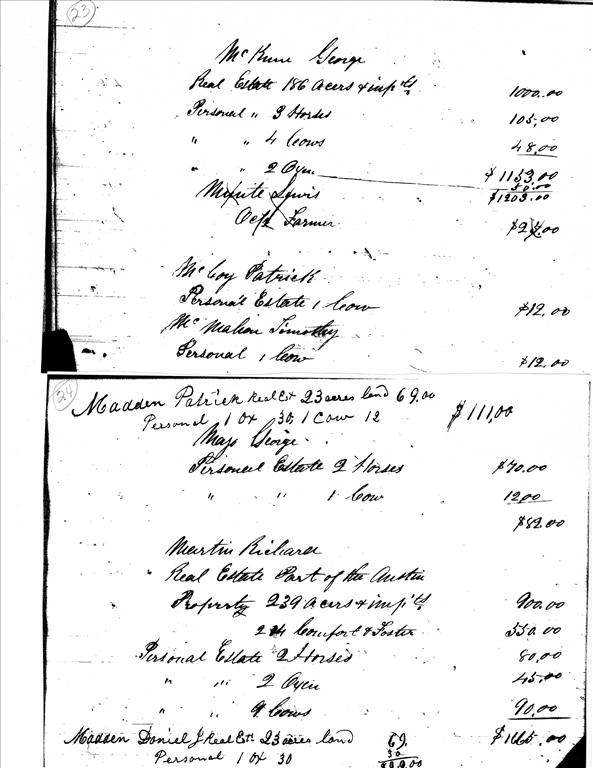 23
McKune George
Real Estate 186 Acers & imp'ts 1000.00
Personal " 3 Horses 105.00
" " 4 Cows 48.00
" " 2 Oxen $1153.00
50.00
Lewis $1203.00
Ocp Farmer
McCoy Patrick
Personal Estate 1 Cow $12.00
McMahon Timothy
Personal 1 Cow $12.00
24
Madden Patrick Real Est 23 acres land 69.00
Personal 1 Ox 30, 1 Cow 12 $111,00
George
Personal Estate 2 Horses $70.00
" " 1 Cow 12.00
$82.00
Martin Richard
Real Estate Part of the Austin
Property 239 Acers & imp'ts 900.00
Comfort & Foster 550.00
Personal Estate 2 Horses 80.00
" " 2 Oxen 45.00
" " 9 Cows 90.00
Madden Daniel J Real Est 23 acres land 69. $1665.00
Personal 1 Ox 30 30